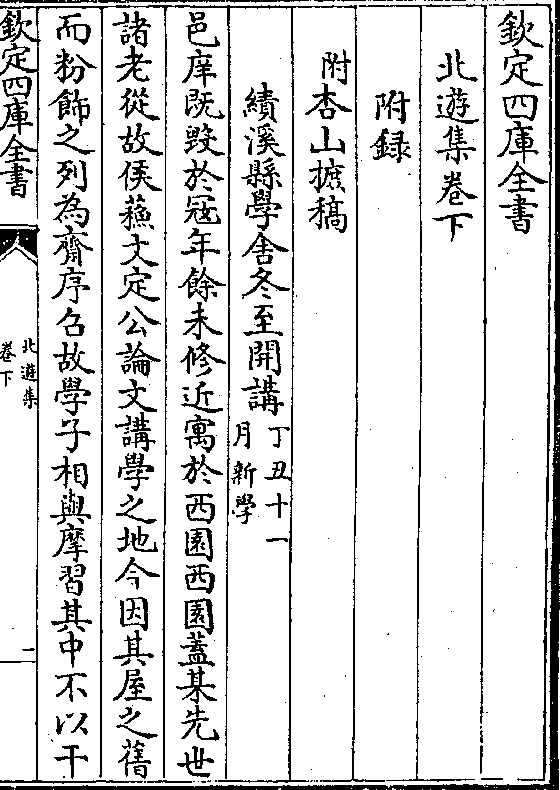 欽定四庫全書
北遊集卷下
附録
附杏山摭稿
績溪縣學舍冬至開講丁丑十一
月新學
邑庠既毀於冦年餘未修近寓於西園西園蓋某先世
諸老從故侯蘓文定公論文講學之地今因其屋之舊
而粉飾之列為齋序召故學子相與摩習其中不以干
欽定四庫全書
北遊集
卷下
一